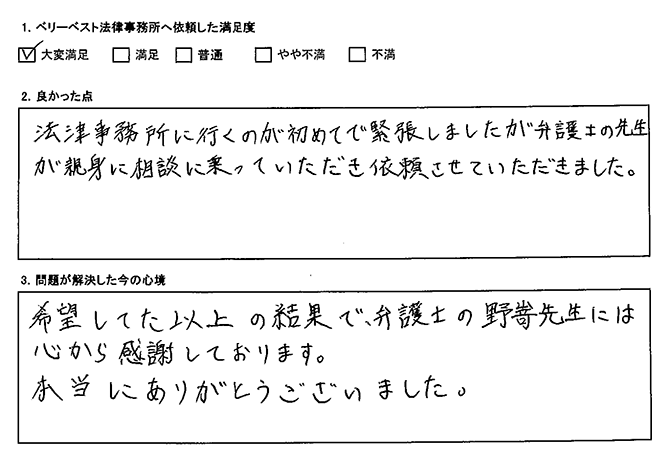 1. ベリーベスト法律事務所へ依頼した満足度
☑ 大変満足 □ 満足 □ 普通 □ やや不満 □ 不満
2. 良かった点
法律事務所に行くのが初めてで緊張しましたが弁護士の先生
が親身に相談に乗っていただき依頼させていただきました。
3. 問題が解決した今の心境
希望してた以上の結果で、弁護士の野嵜先生には
心から感謝しております。
本当にありがとうございました。